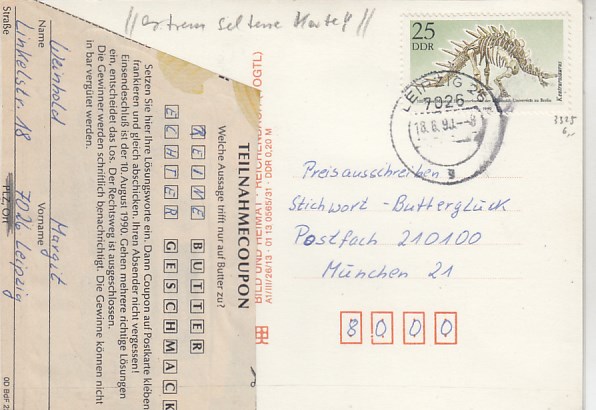 //extrem seltene Karte!//
25
DDR
Kentrurosaurus
LEIPZIG 26
7026
18.8.90.-8
Preisausschreiben
Stichwort - Butterglück
Postfach 210100
München 21
8000
BILD UND HEIMAT REICHENBACH (VOGTL)
A1/III/26/13 - 01 13 0565/31 · DDR 0,20 M
TEILNAHMECOUPON
Welche Aussage trifft nur auf Butter zu?
REINE BUTTER
ECHTER GESCHMACK
Setzen Sie hier Ihre Lösungsworte ein. Dann Coupon auf Postkarte kleben,
frankieren und gleich abschicken. Ihren Absender nicht vergessen!
Einsendeschluß ist der 10. August 1990. Gehen mehrere richtige Lösungen
ein, entscheidet das Los. Der Rechtsweg ist ausgeschlossen.
Die Gewinner werden schriftlich benachrichtigt. Die Gewinne können nicht
in bar vergütet werden.
Weinhold Margit
Name Vorname
Linkelstr. 18 7026 Leipzig
Straße PLZ, Ort